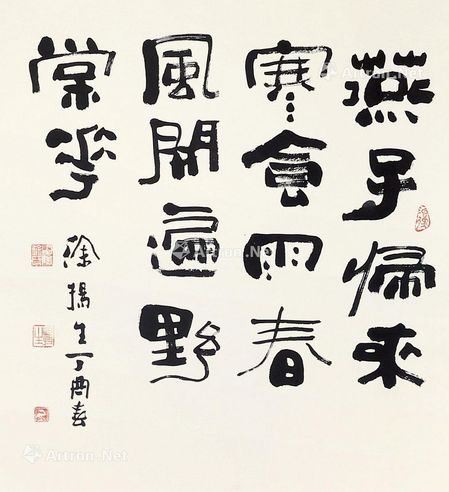 燕子歸來
寒食雨春
風開遍野
棠花
徐揚生丁酉春
Artron.Net